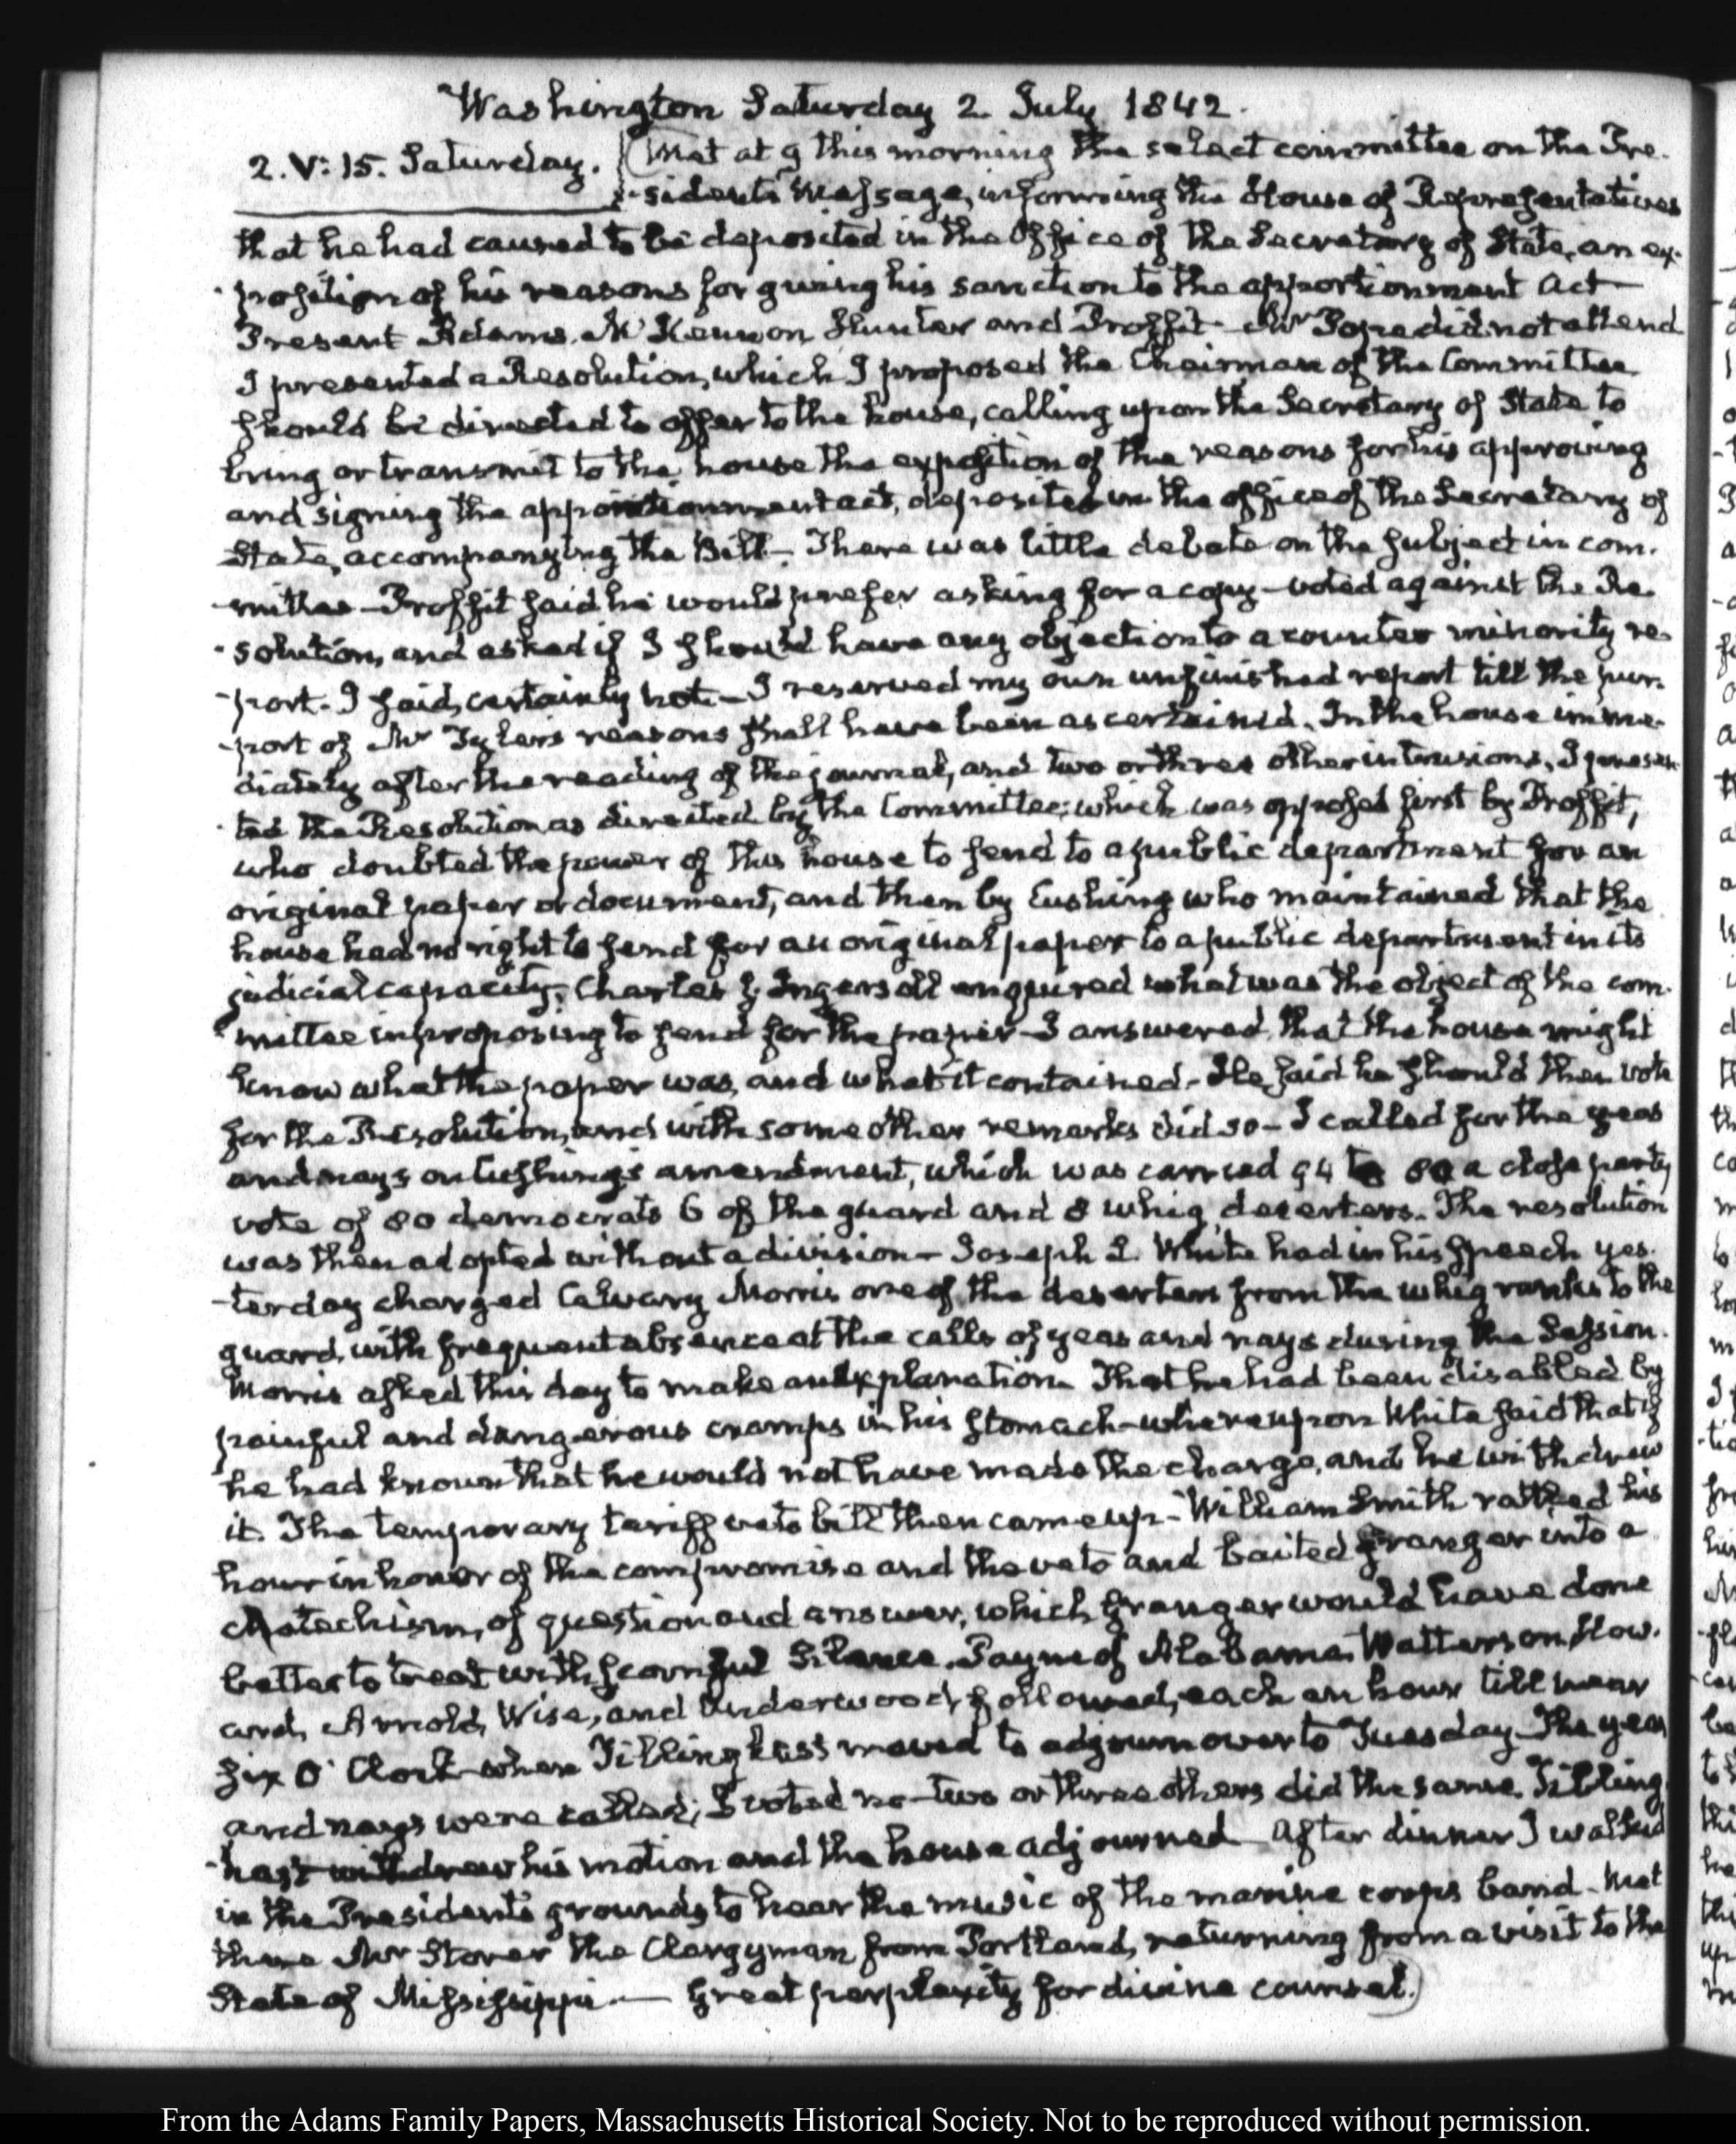 Washington Saturday 2. July 1842.
2. V: 15. Saturday. (Met at 9 this morning the select committee on the Pre-
-sident's Message, informing the House of Representatives
that he had caused to be deposited in the Office of the Secretary of State, an ex-
-position of his reasons for giving his sanction to the apportionment Act—
Present Adams. McKennon Hunter and Proffit— Mr Pope did not attend
I presented a Resolution, which I proposed the Chairman of the Committee
should be directed to offer to the house, calling upon the Secretary of State to
bring or transmit to the house the exposition of the reasons for his approving
and signing the apportionment act, deposited in the office of the Secretary of
State, accompanying the Bill— There was little debate on the subject in com-
-mittee— Proffit said he would prefer asking for a copy— voted against the Re-
-solution, and asked if I should have any objection to a counter minority re-
-port. I said, certainly not— I reserved my own unfinished report till the pur-
-port of Mr Tyler's reasons shall have been ascertained. In the house imme-
diately after the reading of the journal, and two or three other intrusions, I presen-
-ted the Resolution as directed by the Committee; which was opposed first by Proffit,
who doubted the power of this house to send to a public department for an
original paper or document, and then by Cushing who maintained that the
house had no right to send for an original paper to a public department in its
judicial capacity. Charles J. Ingersoll enquired what was the object of the com-
-mittee in proposing to send for the paper— I answered, that the house might
know what the paper was, and what it contained. He said he should then vote
for the Resolution, and with some other remarks did so— I called for the yeas
and nays on Cushing's amendment, which was carried 94 to 80 a close party
vote of 80 democrats 6 of the guard and 8 whig deserters. The resolution
was then adopted without a division— Joseph L. White had in his speech yes-
-terday charged Calvary Morris one of the deserters from the whig ranks to the
guard, with frequent absence at the calls of yeas and nays during the Session.
Morris asked this day to make an explanation. That he had been disabled by
painful and dangerous cramps in his stomach— whereupon White said that if
he had known that he would not have made the charge, and he withdrew
it. The temporary tariff veto bill then came up— William Smith rattled his
hour in honor of the compromise and the veto and baited Granger into a
chatechism, of question and answer, which Granger would have done
better to treat with scornful silence. Payne of Alabama. Watterson, How-
ard, Arnold, Wise, and Underwood, followed, each an hour till near
six O'Clock when Tillinghast moved to adjourn over to Tuesday— The yeas
and nays were called; I voted no— two or three others did the same. Tilling-
-hast withdrew his motion and the house adjourned— After dinner I walked
in the President's grounds to hear the music of the marine corps band— Met
there Mr Storer the Clergyman from Portland, returning from a visit to the
State of Mississippi.— Great perplexity for divine counsel.)
From the Adams Family Papers, Massachusetts Historical Society. Not to be reproduced without permission.